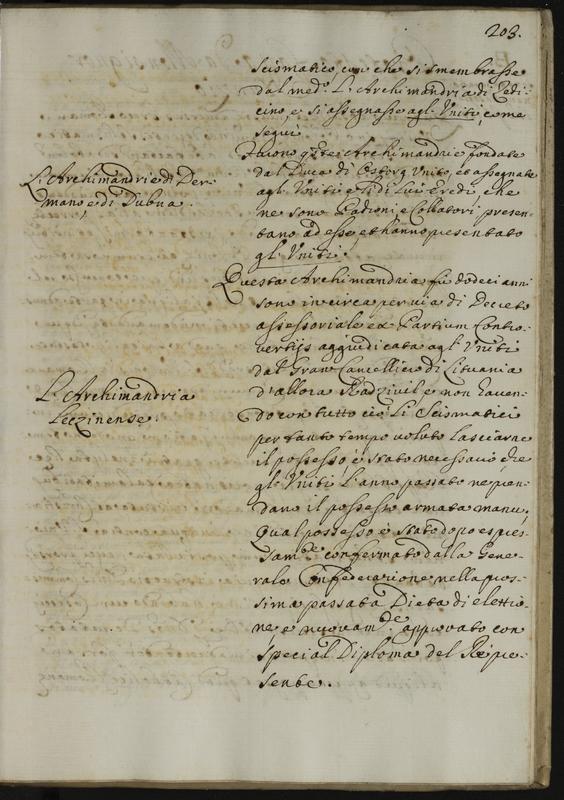 203.
scismatico, con che si smembrasse
dal med.o L'Archimandria di Zedi-
cino, e si assegnasse agl' Uniti, come
seguì.
L'Archimandrie di Der-
mano, e di Dubna.
Furono q.ste Archimandrie fondate
dal Duca di Ostorg Unito, et assegnate
agl' Uniti, e li di Lui Eredi, che
ne sono Padroni, e Collatori, presen-
tano ad esse, et hanno presentato
gl' Uniti.
L'Archimandria
Leczinense.
Questa Archimandria fù dodeci anni
sono incirca per via di Decreto
assessoriale ex Partium Contro-
versijs aggiudicata agl' Uniti
dal Gran Cancelliero di Lituania
d'allora Radzivil, e non haven-
do con tutto ciò li Scismatici
per tanto tempo voluto lasciarne
il possesso, è stato necessario che
gl' Uniti l'anno passato ne pren-
dano il possesso armata manu,
Qual possesso è stato dopo espres-
sam.te confermato dalla Gene-
rale Confederazione nella pros-
sima passata Dieta di elettio-
ne, e nuovam.te approvato con
special Diploma del Rè pre-
sente.